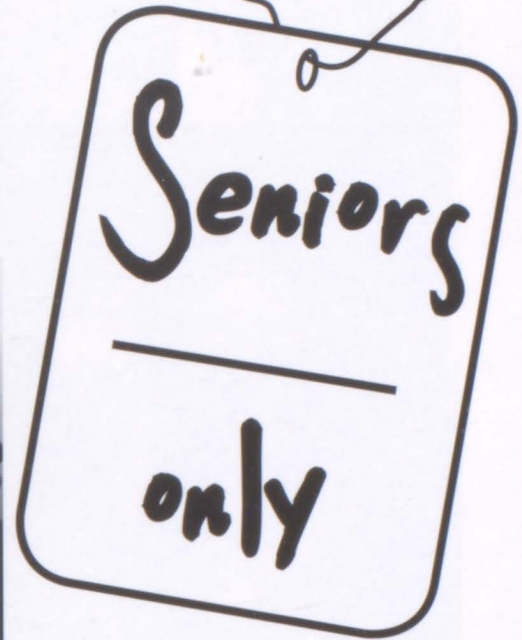 Seniors
only